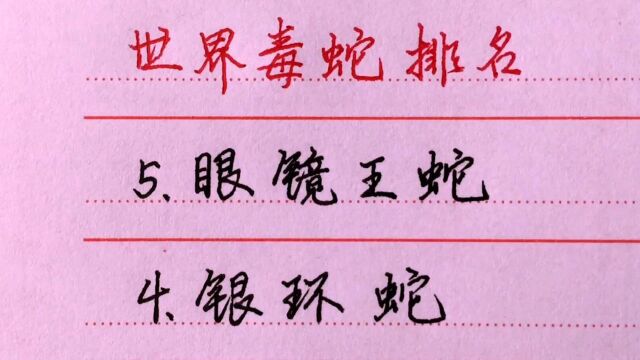 世界毒蛇排名
5、眼镜王蛇
4、银环蛇